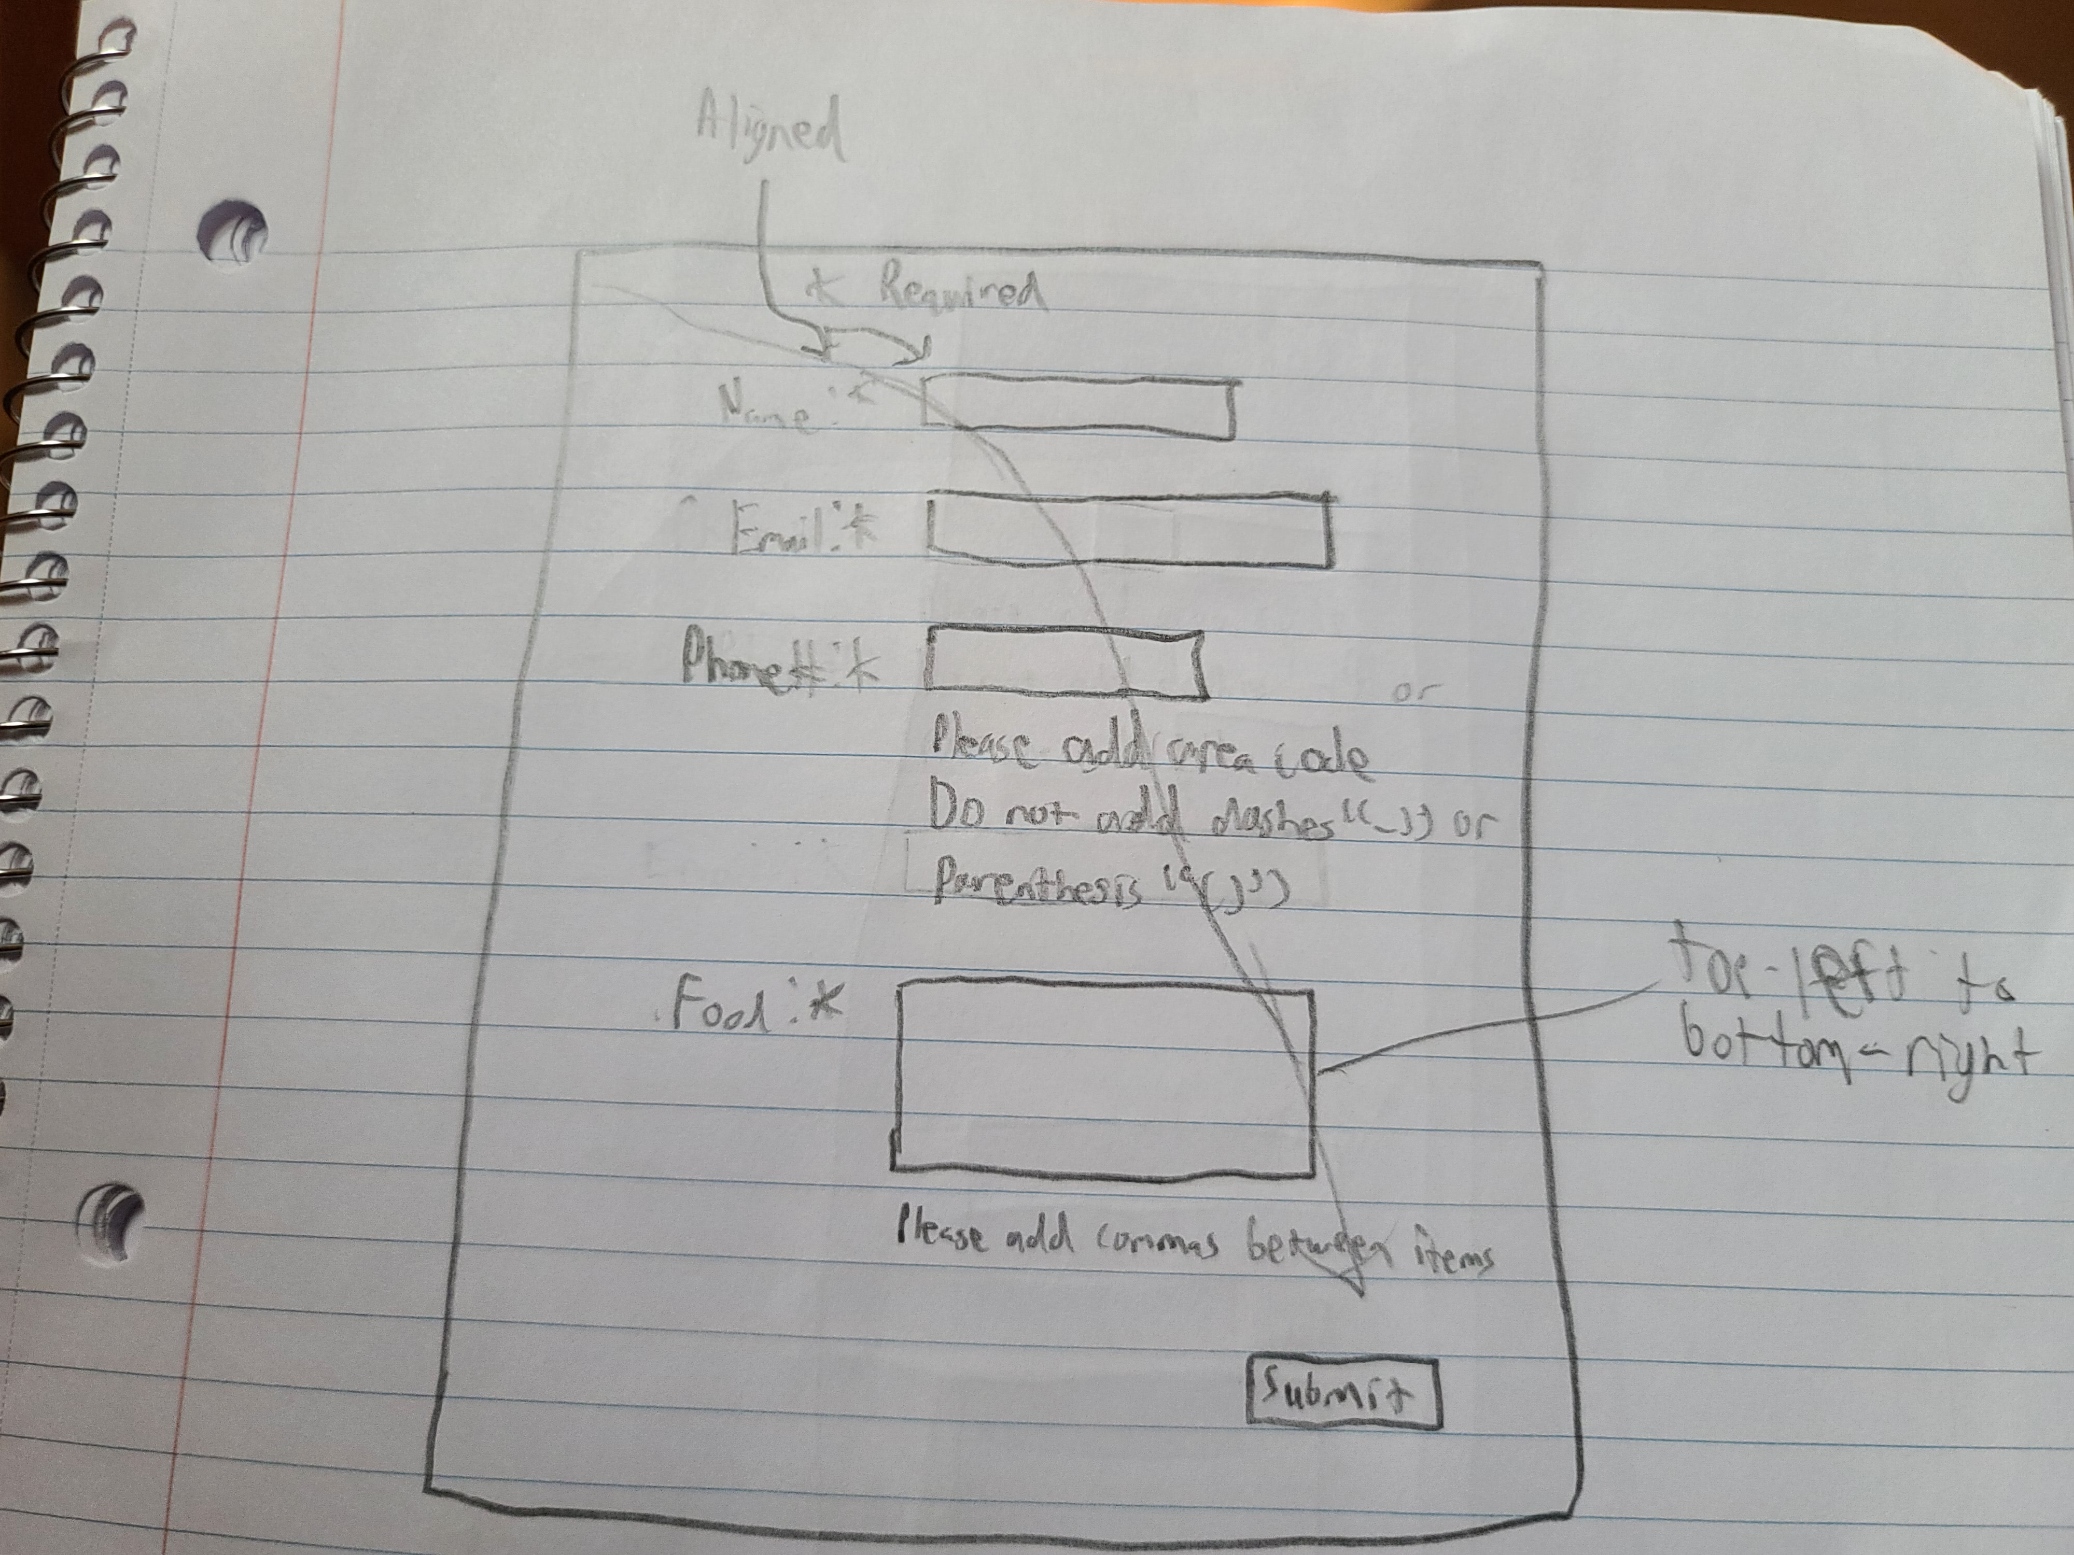 Aligned
* Required
Name:*
Email:*
Phone#:*
or
Please add area code
Do not add dashes "-" or
Parenthesis "()"
Food:*
top-left to
bottom-right
Please add commas between items
Submit